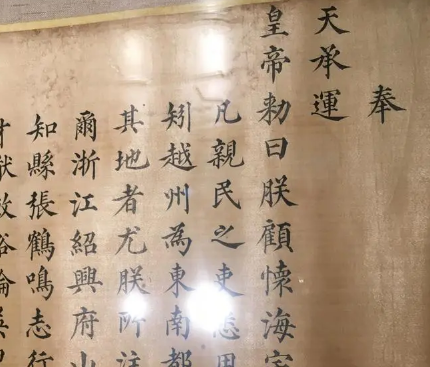 奉
天承運
皇帝勑曰朕顧懷海
凡親民之吏悉
矧越州為東南都
其地者尤朕所注
爾浙江紹興府山
知縣張鶴鳴志行
猷敏